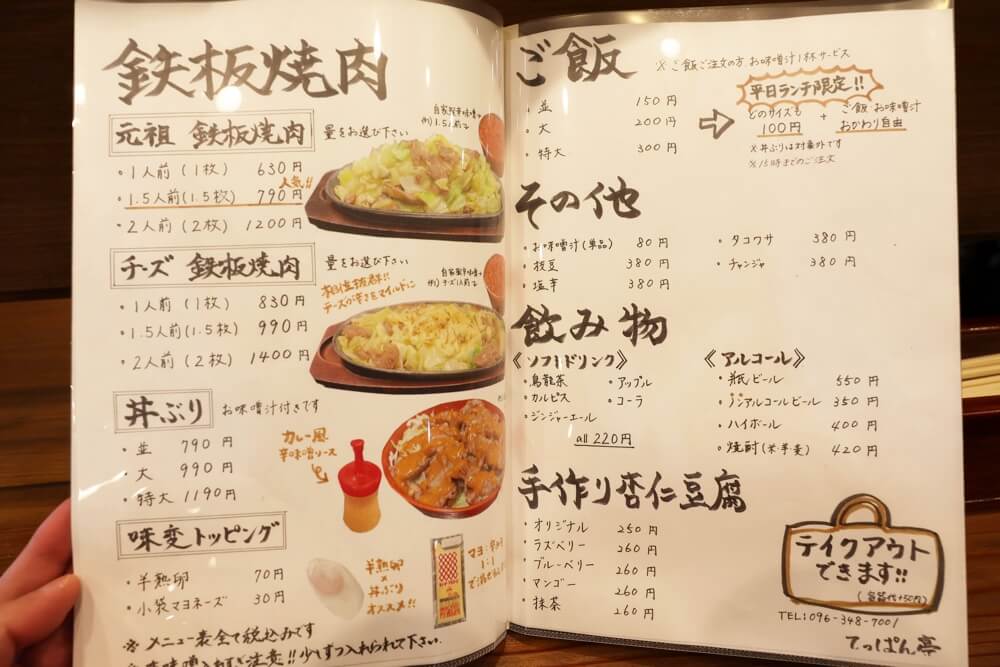 鉄板焼肉
元祖 鉄板焼肉
量をお選び下さい
・1人前(1枚) 630円
人気!!
・1.5人前(1.5枚) 790円
・2人前(2枚) 1200円
チーズ 鉄板焼肉
量をお選び下さい
・1人前(1枚) 830円
・1.5人前(1.5枚) 990円
・2人前(2枚) 1400円
相性抜群!!
チーズが辛さをマイルドに
丼ぶり
お味噌汁付きです
・並 790円
・大 990円
・特大 1190円
カレー風
辛味噌ソース
味変トッピング
・半熟卵 70円
・小袋マヨネーズ 30円
半熟卵
×
丼ぶり
オススメ!!
1:1
※メニュー表全て税込みです
ご飯
※ご飯ご注文の方、お味噌汁1杯サービス
・並 150円
・大 200円
・特大 300円
平日ランチ限定!!
どのサイズも
100円
+
ご飯・お味噌汁
おかわり自由
※丼ぶりは対象外です
※15時までのご注文
その他
・お味噌汁(単品) 80円
・枝豆 380円
・塩辛 380円
・タコワサ 380円
・チャンジャ 380円
飲み物
《ソフトドリンク》
・烏龍茶
・アップル
・カルピス
・コーラ
・ジンジャーエール
all 220円
《アルコール》
・瓶ビール 550円
・ノンアルコールビール 350円
・ハイボール 400円
・焼酎(米・芋・麦) 420円
手作り杏仁豆腐
・オリジナル 250円
・ラズベリー 260円
・ブルーベリー 260円
・マンゴー 260円
・抹茶 260円
テイクアウト
できます!!
(容器代+50円)
TEL:096-348-7001
てっぱん亭